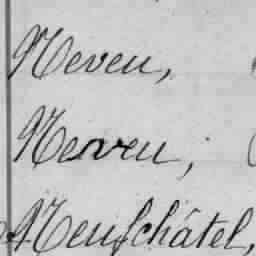 Neveu,
Nerveu,
Neufchâtel,